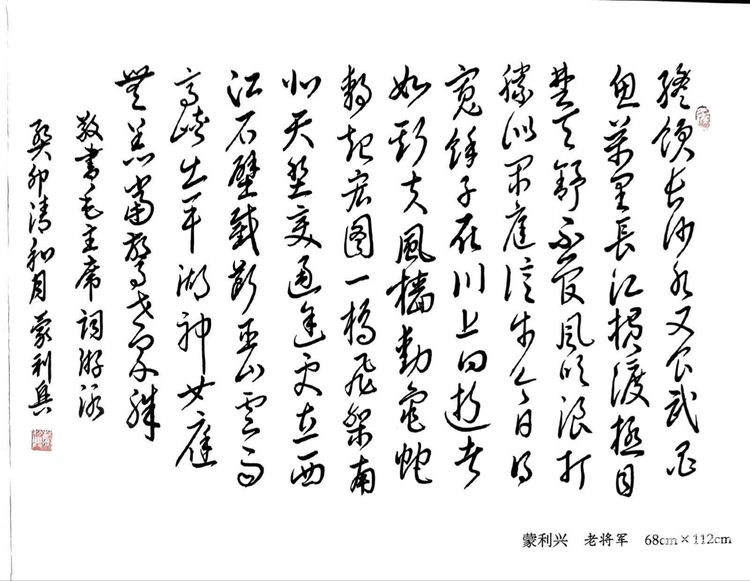 纔饮长沙水又食武昌
鱼萬里長江横渡極目
楚天舒不管風吹浪打
勝似闲庭信步今日得
寬馀子在川上曰逝者
如斯夫風檣動龜蛇
静起宏圖一橋飛架南
北天堑变通途更立西
江石壁截断巫山雲雨
高峡出平湖神女應
無恙當驚世界殊
敬書毛主席詞游泳
癸卯清和月蒙利興
蒙利兴 老将军 68cm×112cm